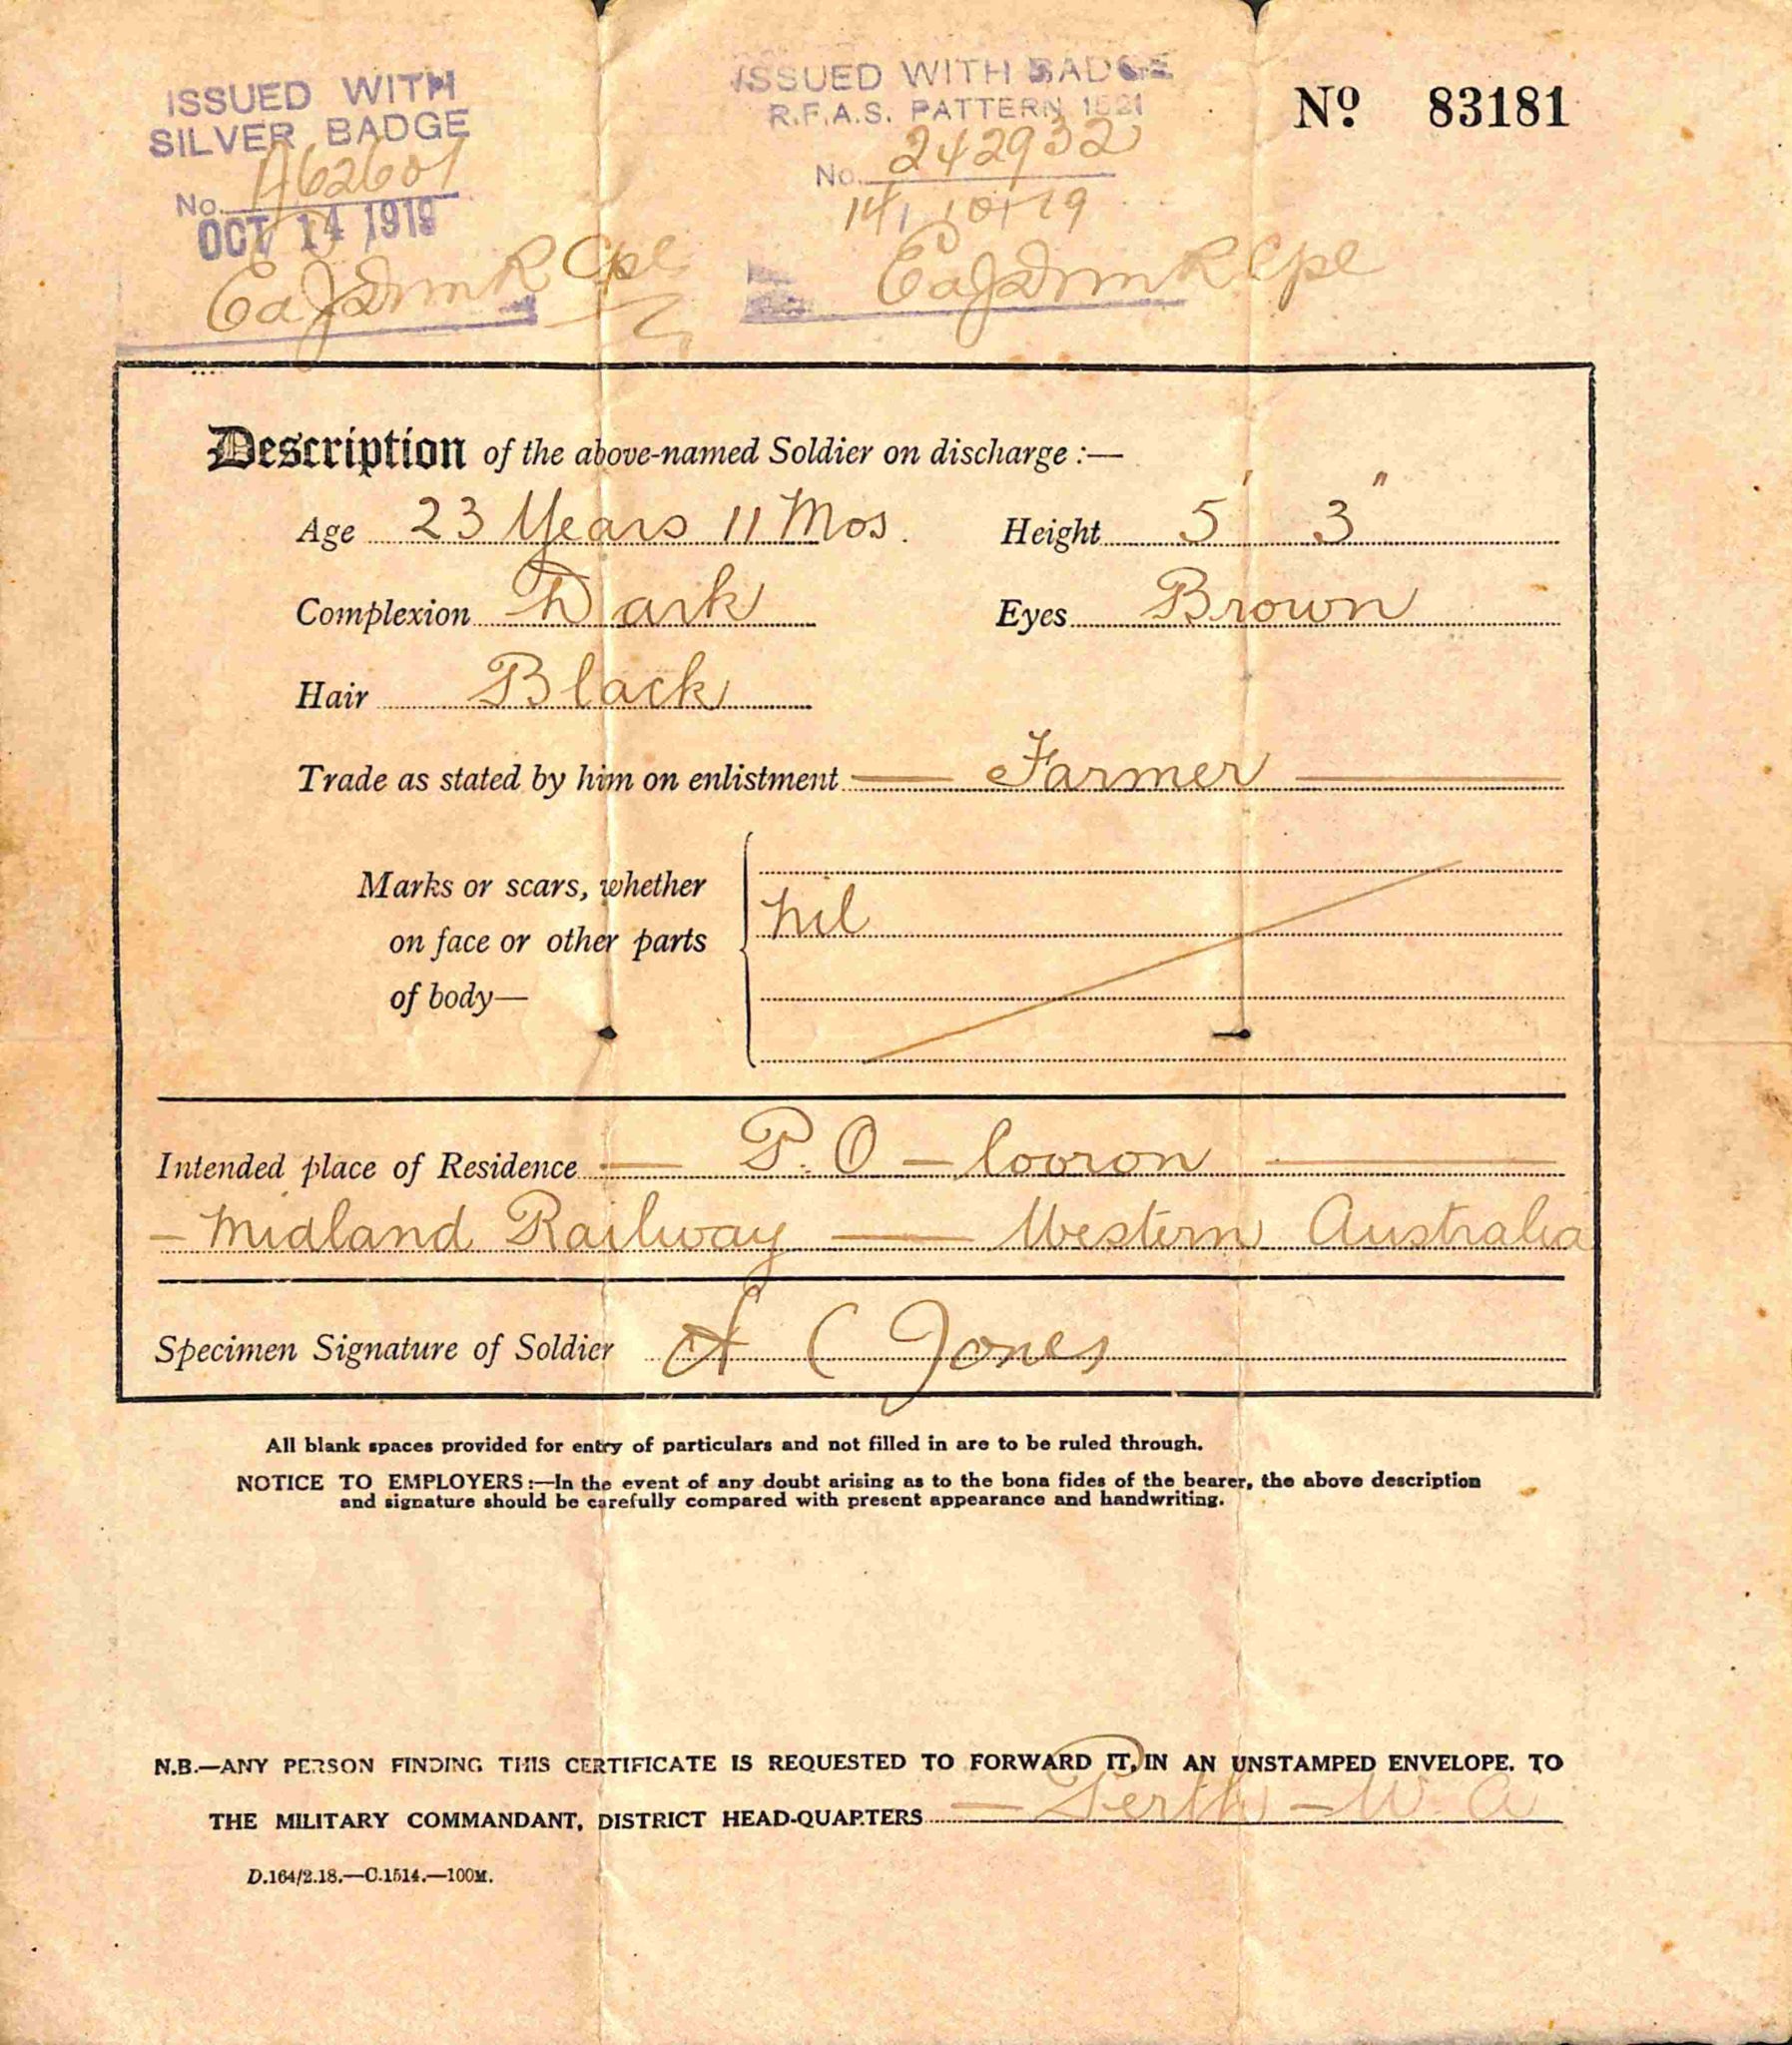 ISSUED WITH
SILVER BADGE
No. A62601
OCT 14 1919
Cpl
ISSUED WITH BADGE
R.F.A.S. PATTERN 1521
No. 242932
14/10/19
Cpl
Nº 83181
Description of the above-named Soldier on discharge :—
Age 23 Years 11 Mos. Height 5' 3"
Complexion Dark Eyes Brown
Hair Black
Trade as stated by him on enlistment — Farmer —
Marks or scars, whether
on face or other parts
of body—
nil
Intended place of Residence — P.O — Cooron —
- Midland Railway — Western Australia
Specimen Signature of Soldier A C Jones
All blank spaces provided for entry of particulars and not filled in are to be ruled through.
NOTICE TO EMPLOYERS :—In the event of any doubt arising as to the bona fides of the bearer, the above description
and signature should be carefully compared with present appearance and handwriting.
N.B.—ANY PERSON FINDING THIS CERTIFICATE IS REQUESTED TO FORWARD IT, IN AN UNSTAMPED ENVELOPE, TO
THE MILITARY COMMANDANT, DISTRICT HEAD-QUARTERS — Perth — W. A
D.164/2.18.—C.1514.—100M.